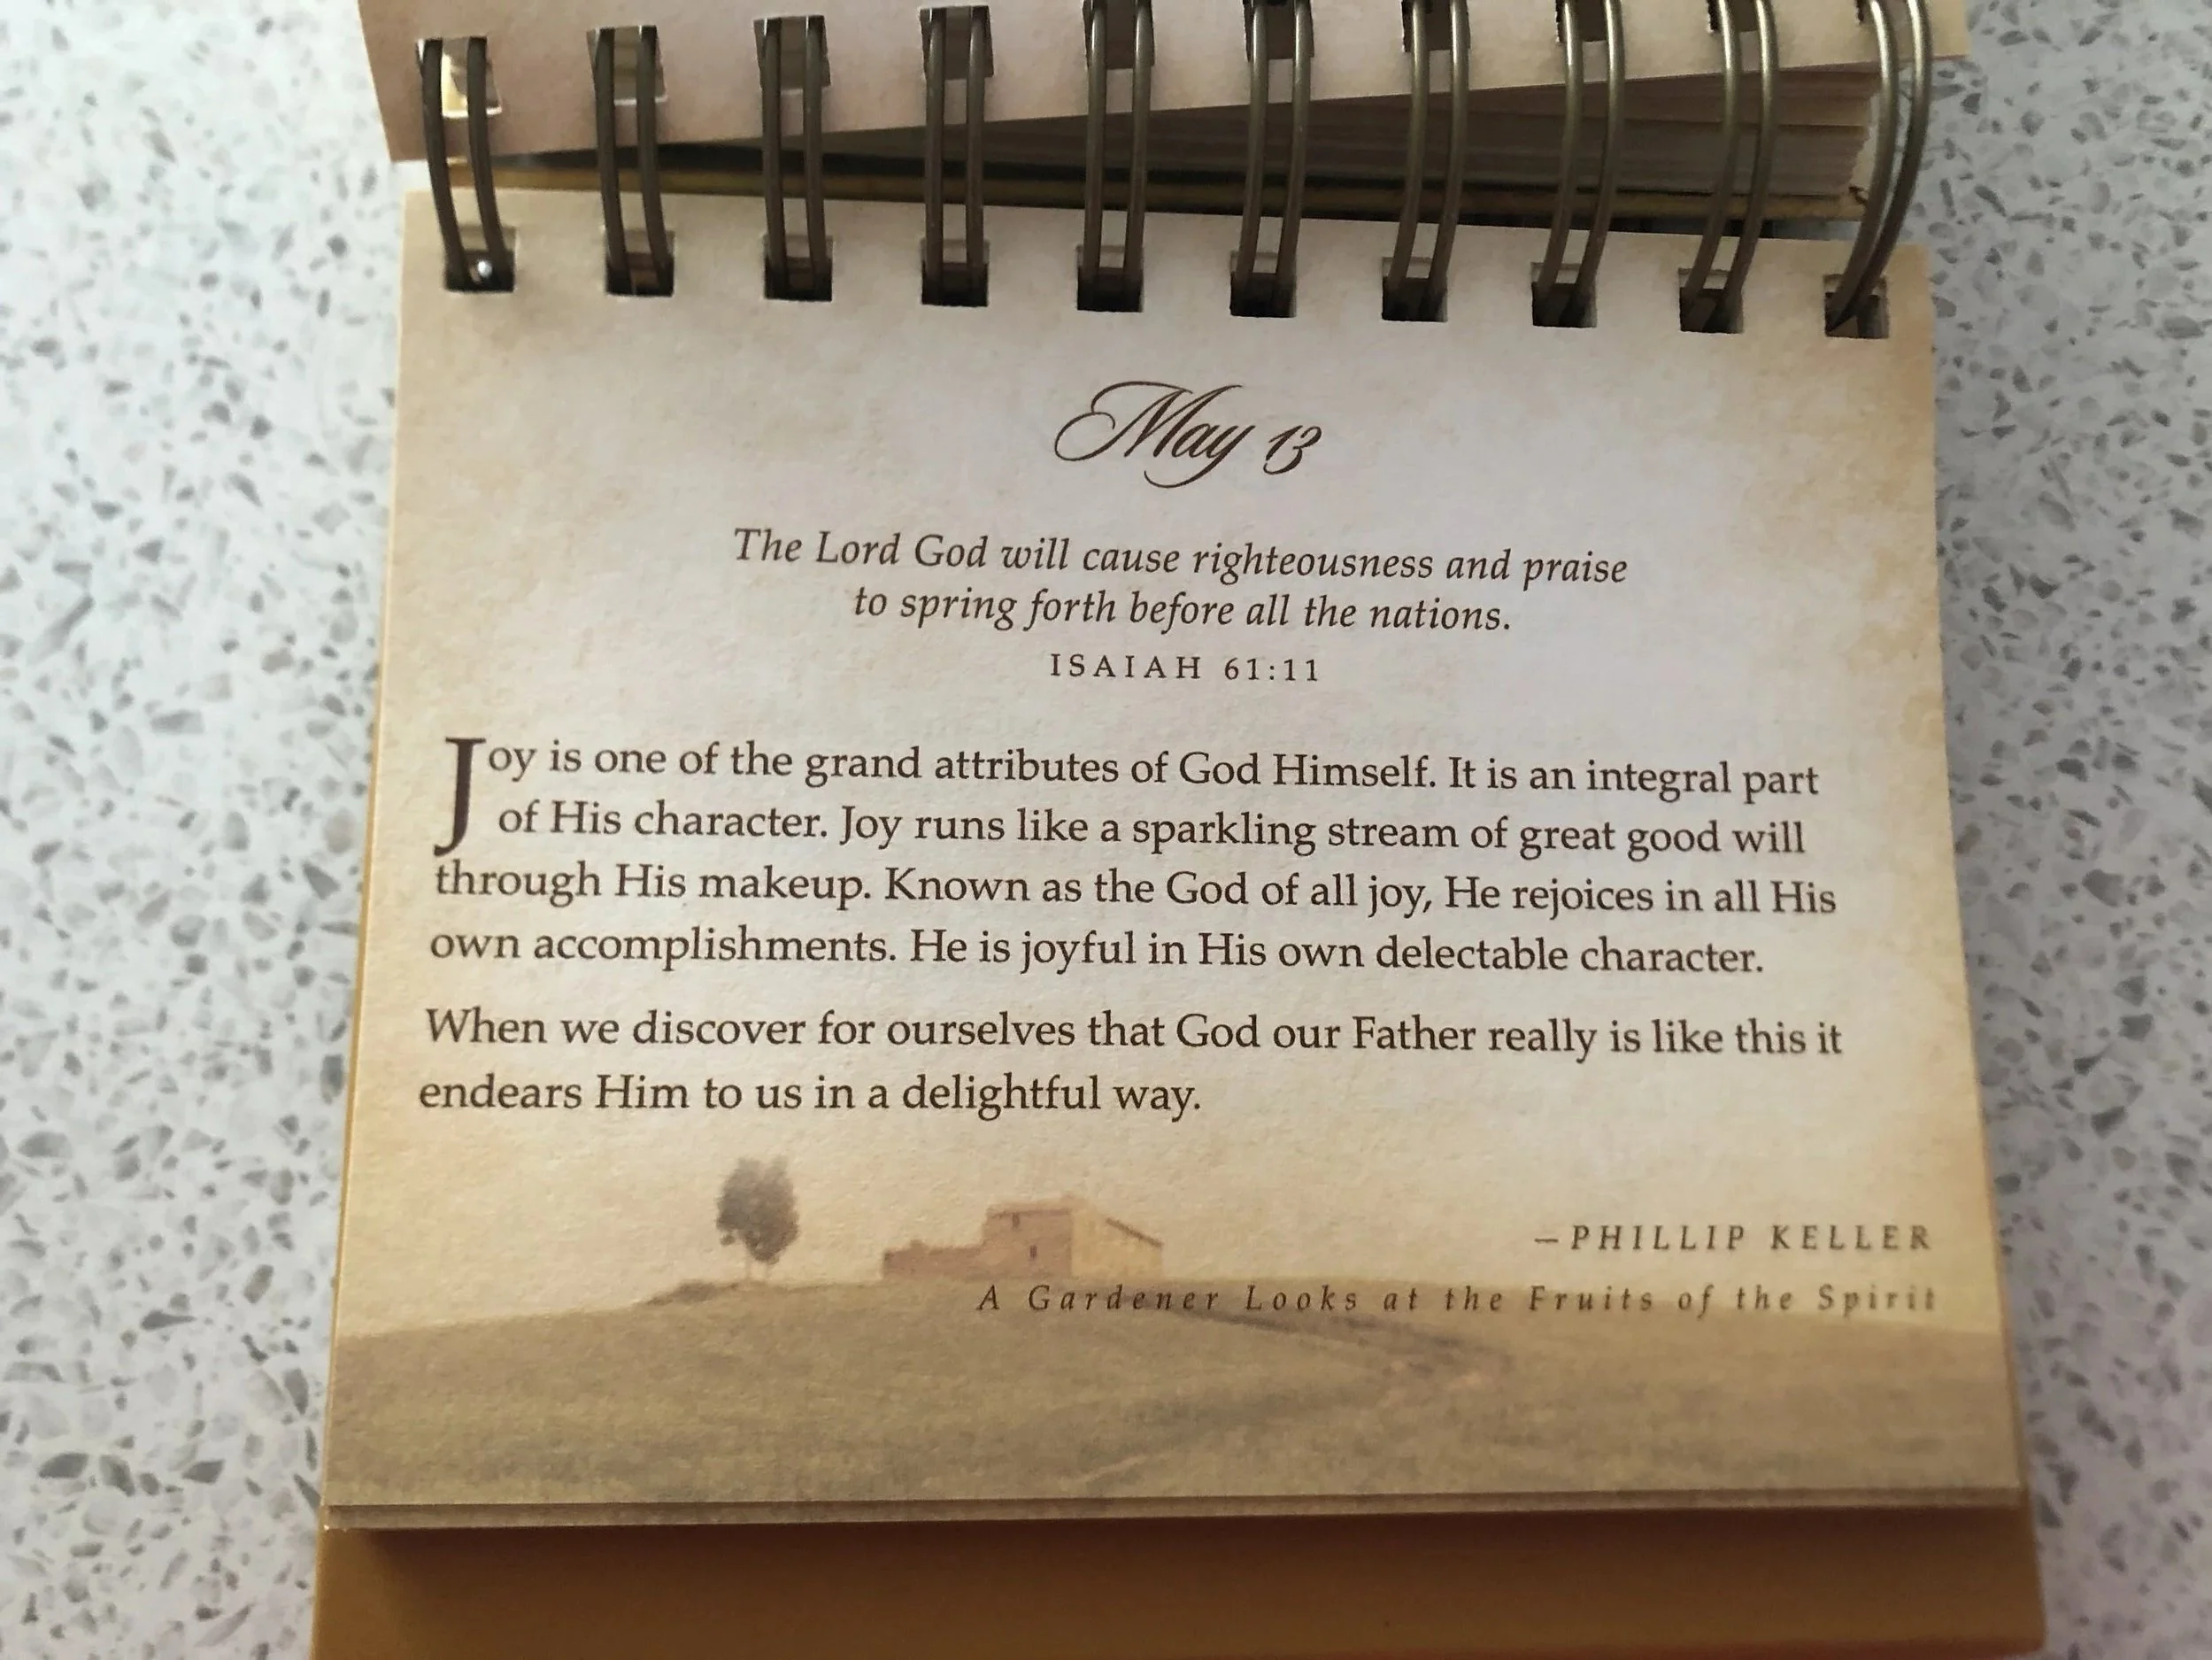 May 13
The Lord God will cause righteousness and praise
to spring forth before all the nations.
ISAIAH 61:11
Joy is one of the grand attributes of God Himself. It is an integral part
of His character. Joy runs like a sparkling stream of great good will
through His makeup. Known as the God of all joy, He rejoices in all His
own accomplishments. He is joyful in His own delectable character.
When we discover for ourselves that God our Father really is like this it
endears Him to us in a delightful way.
—PHILLIP KELLER
A Gardener Looks at the Fruits of the Spirit